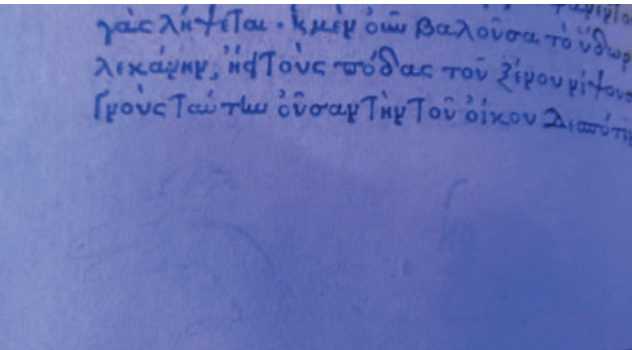 γὰς λήψεται · κ μὲν οὖν βαλοῦσα τὸ ὕδωρ
λεκάνην, τοὺς πόδας τοῦ ξένου νίψουσ
ταύτην οὖσαν τὴν τοῦ οἴκου